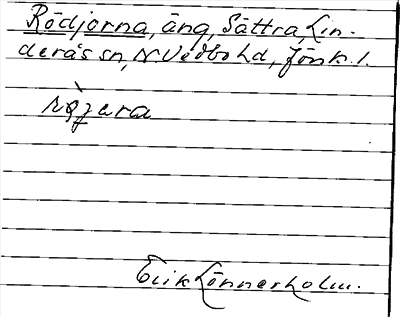 Rödjorna, äng, Sättra, Lin-
derås sn, N Vedbo hd, Jönk. l.
Erik Lönnerholm.